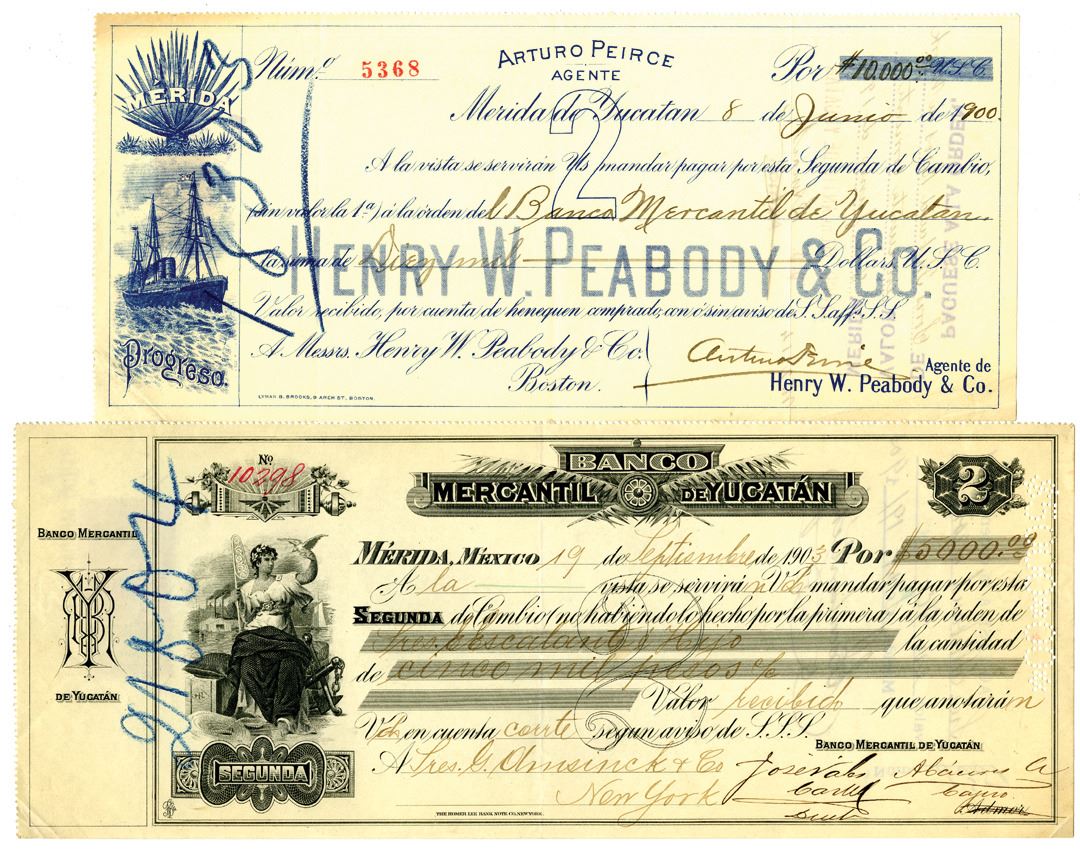 MÉRIDA
Núm.o 5368
ARTURO PEIRCE
AGENTE
Por $10.000 00 U.S.C.
2
Merida de Yucatan 8 de Junio de 1900.
A la vista se servirán Vs mandar pagar por esta Segunda de Cambio,
(sin valor la 1ª) á la órden del Banco Mercantil de Yucatan
la suma de Diez mil Dollars, U.S.C.
HENRY W. PEABODY & CO.
Valor recibido, por cuenta de henequen comprado, con ó sin aviso de S.S. aff. S.S.
A Messrs. Henry W. Peabody & Co.
Boston.
Arturo Peirce
Agente de
Henry W. Peabody & Co.
Progreso.
LYMAN B. BROOKS, 9 ARCH ST. BOSTON.
BANCO MERCANTIL
DE YUCATÁN
No.
10298
BANCO
MERCANTIL DE YUCATÁN
2
MÉRIDA, MÉXICO 19 de Septiembre de 1903 Por $5000.00
A la vista se servirán Vds mandar pagar por esta
SEGUNDA de Cambio (no habiéndolo hecho por la primera) á la órden de
Escalante Hijo la cantidad
de cinco mil pesos
Valor recibido que anotarán
Vds en cuenta corte segun aviso de S.S.S.
BANCO MERCANTIL DE YUCATÁN
A Sres. G. Amsinck & Co
New York
SEGUNDA
THE HOMER LEE BANK NOTE CO. NEW YORK.